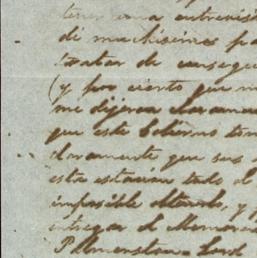 tener una entrevis
di muchisimos pa
tratar de consegu
(y por cierto que m
me dijeron claramen
que este Gobierno tom
doramente que sus
esta estacion todo el
imposible obtenerlo, y p
entregar el Memora
Palmerston. Lord